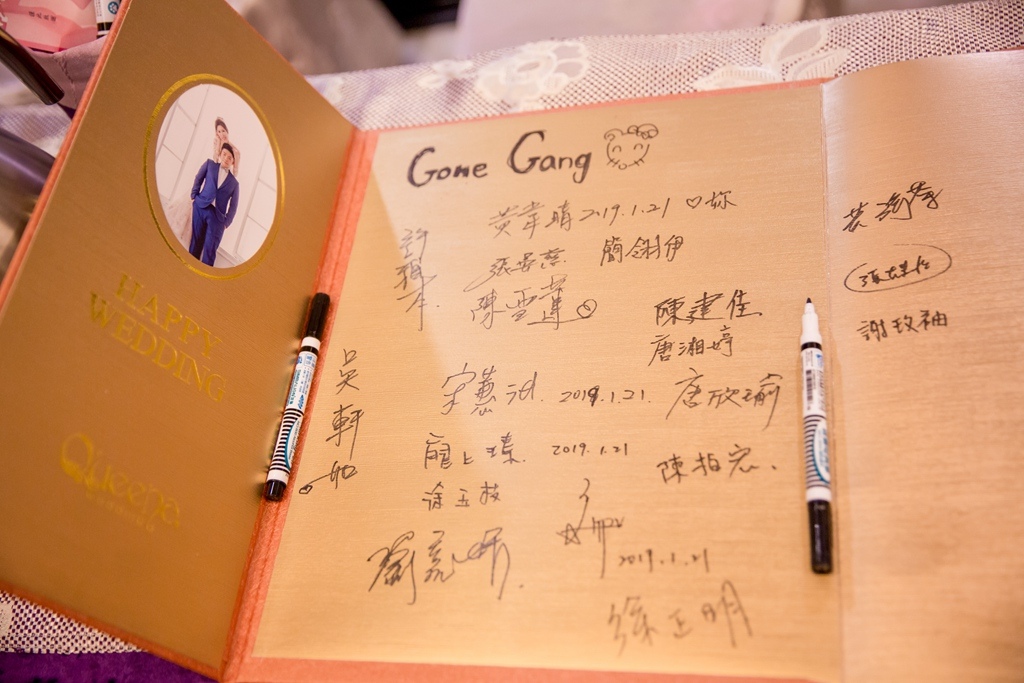 HAPPY
WEDDING
Queena
Gome Gang
黃韋晴 2019.1.21 ♡妳
簡翎伊
陳雪蓮
陳建佳
唐湘婷
吳軒如
宋蕙汝. 2019.1.21.
唐欣瑜
龎上瑧. 2019.1.21
陳柏宏.
徐玉枝
2019.1.21
徐正明
謝玫袖